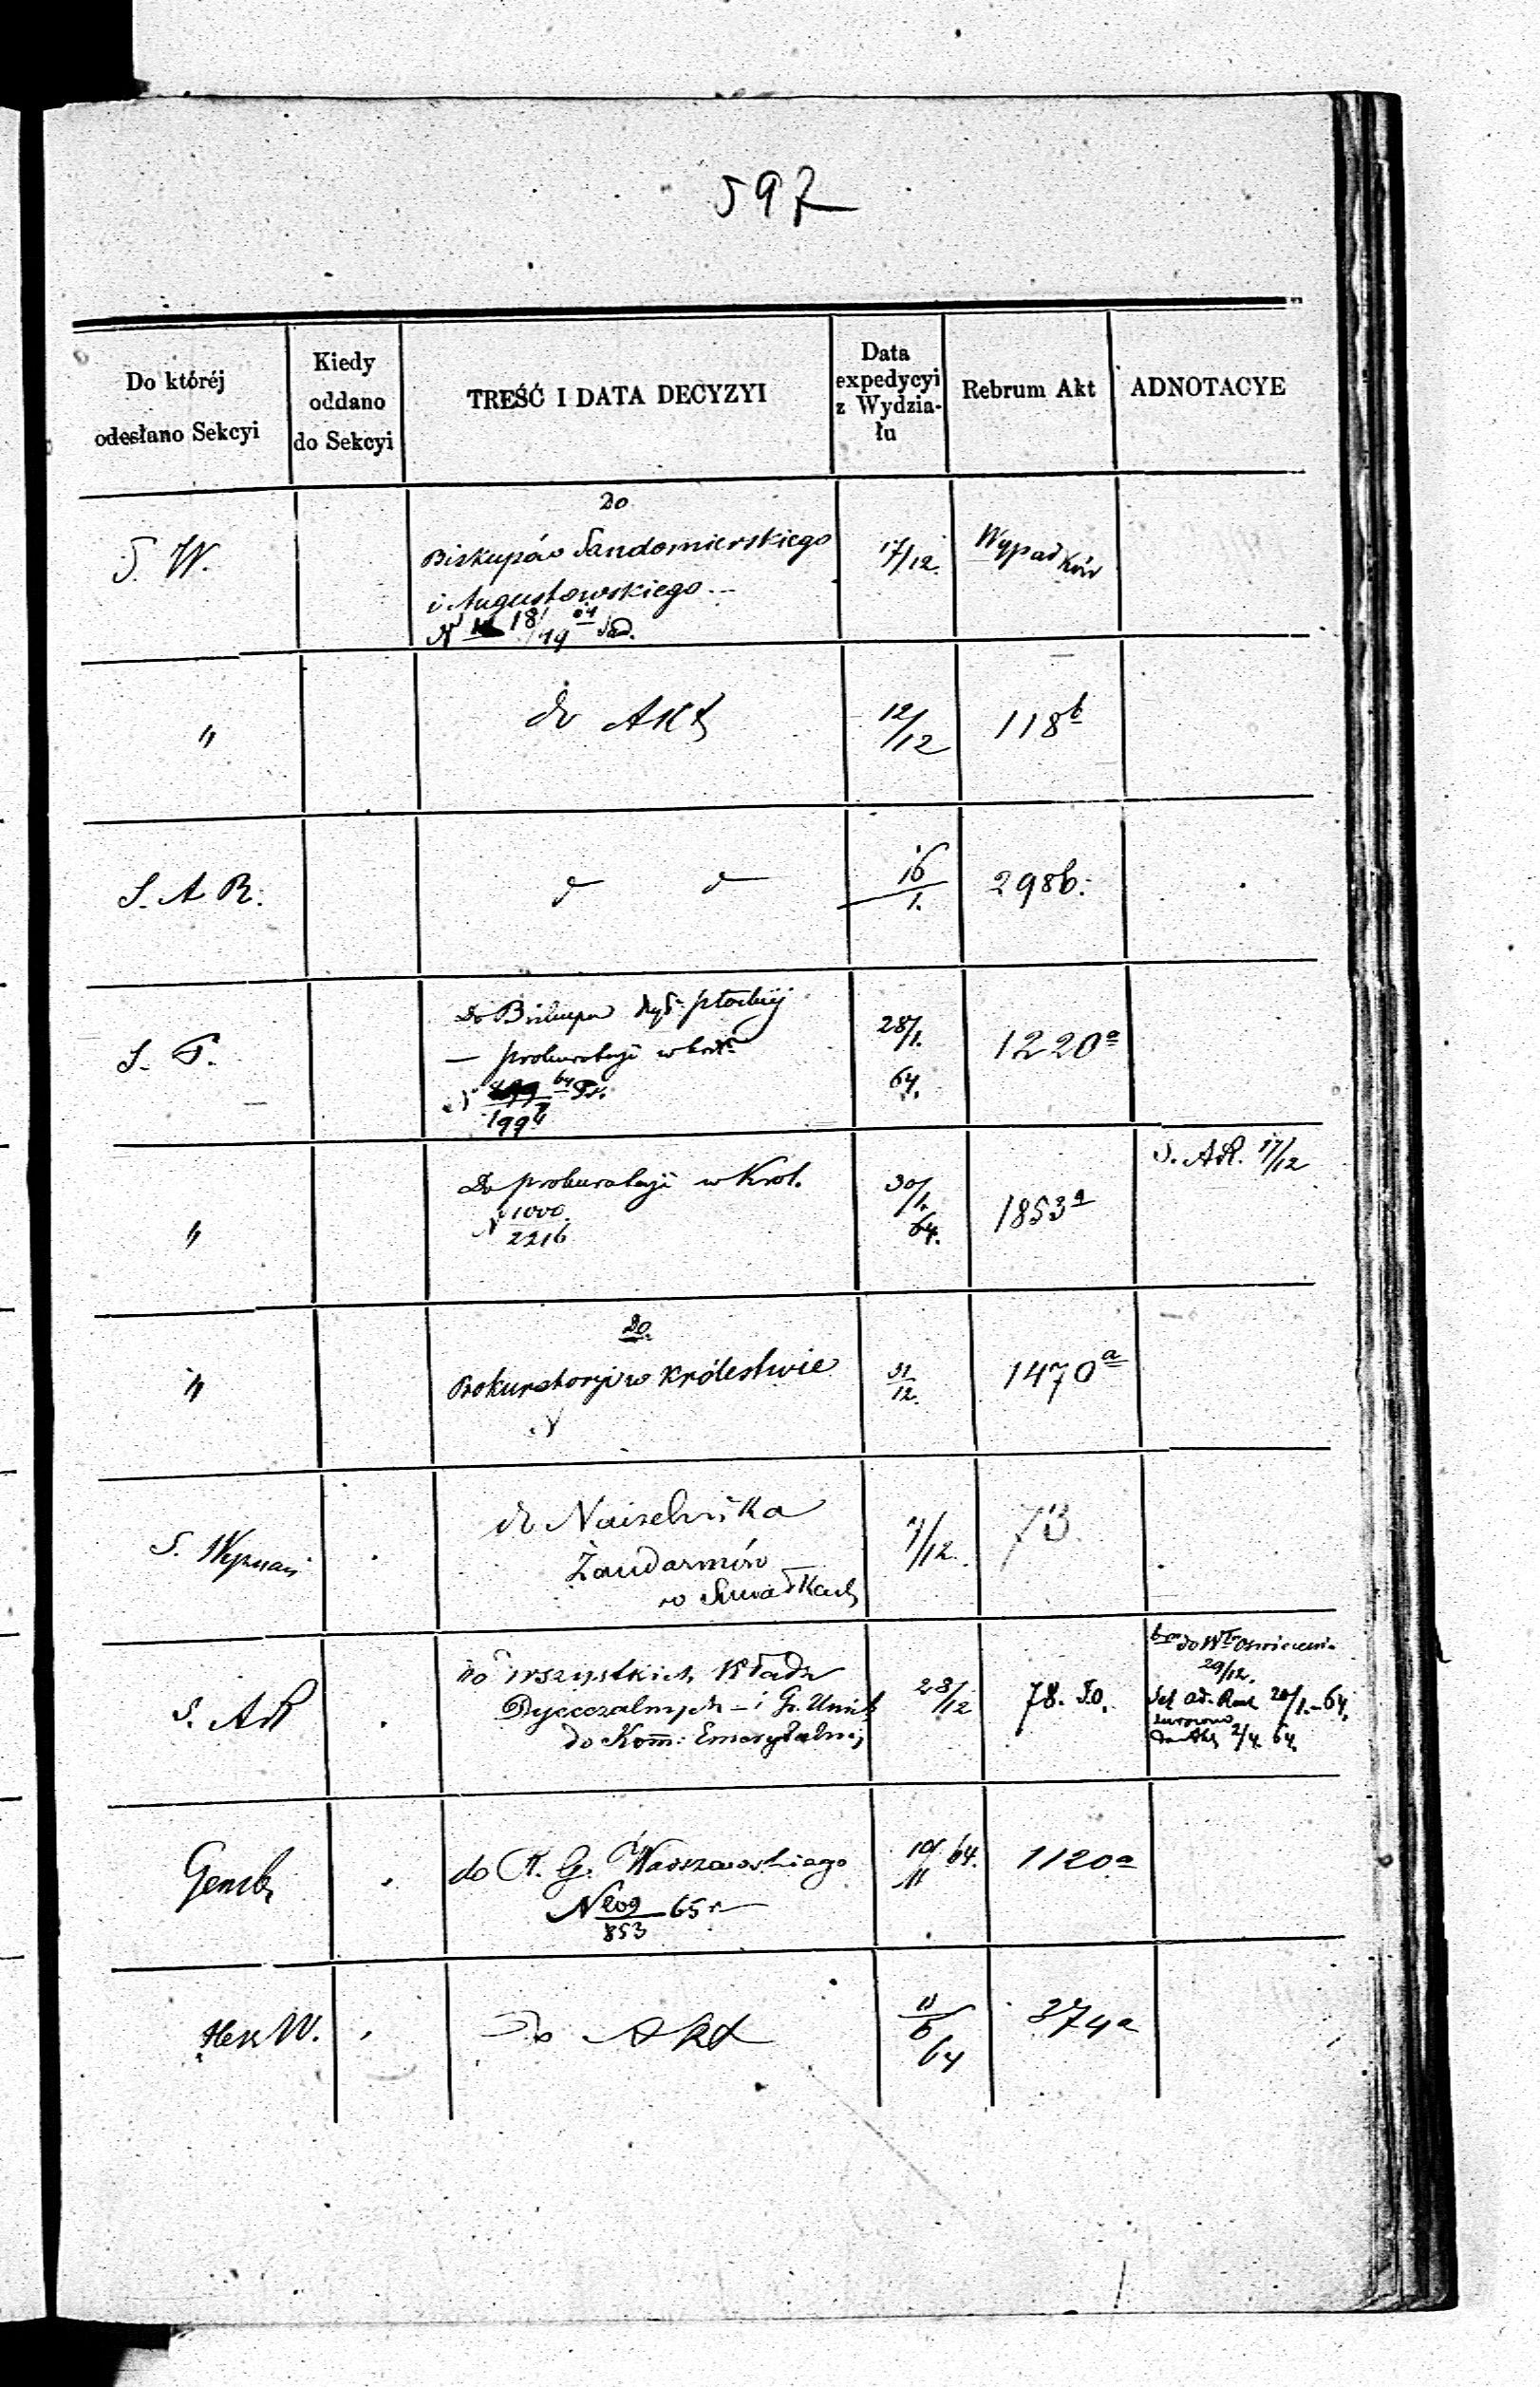 597
Do któréj
odesłano Sekcyi
Kiedy
oddano
do Sekcyi
TREŚĆ I DATA DECYZYI
Data
expedycyi
z Wydzia-
łu
Rebrum Akt
ADNOTACYE
S. W.
Do
Biskupów Sandomierskiego
i Augustowskiego
17/12.
Wypadków
"
do Akt
12/12
118b
S. A R.
16/1.
298b.
S. F.
Do Biskupa Dyd. płockiej
— prokuratoryi w król.
28/1.
64.
1220a
"
Do prokuratoryi w Król.
N 1000/2216
30/1.
64.
1853a
S. AR. 17/12
"
Do
Prokuratoryi w Królestwie
N
31/12.
1470a
S. Wyznań
do Naczelnika
Żandarmów
w Suwałkach
/12.
73.
S. AR
do wszystkich Władz
Dyecezalnych – i Gr. Unick
do Kom: Emerytalnej
28/12
78.
29/12.
20/1.–64.
2/4. 64.
do R. G. Warszawskiego
N 209/853 65 r
64.
1120a
W.
Do Akt
64
374a